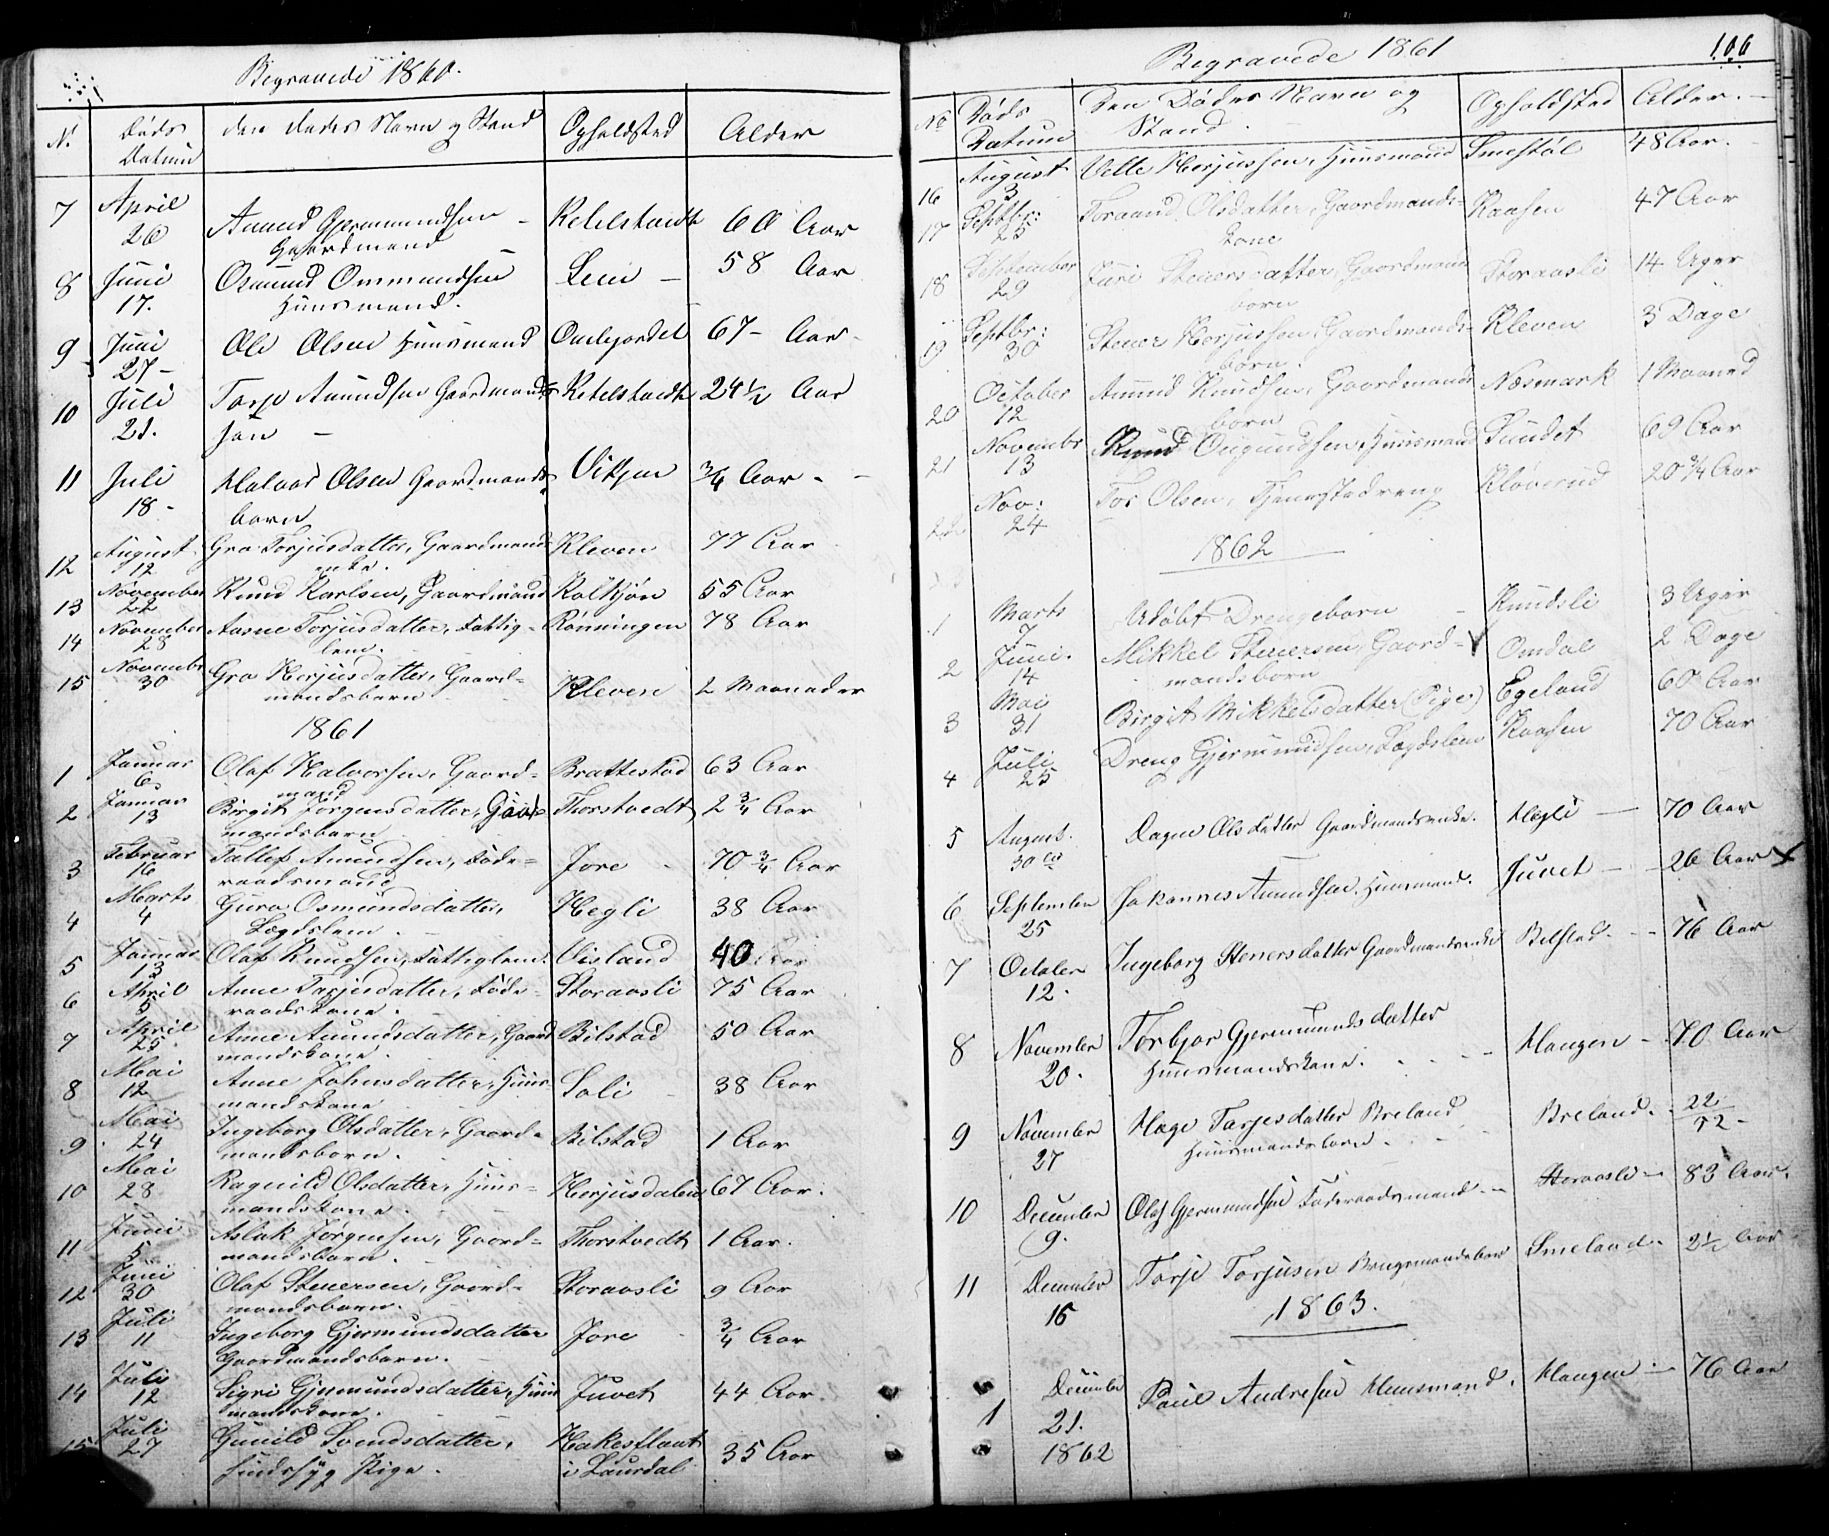 Begravede 1860.
N. Døds Datum den dødes Navn og Stand Opholdsted Alder
7 April 26 Amund Gjermundsen Gaardmand Ketelstvedt 60 Aar
8 Juni 17. Osmund Ommundsen Huusmand. Lein 58 Aar
9 Juni 27 Ole Olsen Huusmand 67 Aar
10 Juli 21. Torje Amundsen Gaardmands søn Ketelstvedt 24½ Aar
11 Juli 18 Halvor Olsen Gaardmands barn Vikjen ¾ Aar
12 August 12 Gro Torjusdatter, Gaardmands enke. Kleven 77 Aar
13 November 22 Knud Karlsen, Gaardmand Kolkjøn 55 Aar
14 November 28 Aasne Torjusdatter, Fattig- lem. Rønningen 78 Aar
15 Novembr 30 Gro Herjusdatter, Gaard- mandsbarn Kleven 2 Maaneder
1861
1 Januar 6 Olaf Halvorsen, Gaard- mand Brattestad 63 Aar
2 Januar 13 Birgit Jørgensdatter, Gaard- mandsbarn Thorstvedt 2¾ Aar
3 Februar 16 Tallef Amundsen, Føde- raadsmand Jore 70¾ Aar
4 Marts 4 Guro Osmundsdatter, Lægdslem. Hegli 38 Aar
5 Januar 13 Olaf Knudsen, Fattiglem. Visland 40 Aar
6 April 5 Anne Tarjesdatter, Føde- raadskone. Storaasli 75 Aar
7 April 25 Anne Amundsdatter, Gaard mandskone. Bilstad 50 Aar
8 Mai 12 Anne Johnsdatter, Huus- mandskone Soli 38 Aar
9 Mai 24 Ingeborg Olsdatter, Gaard- mandsbarn. Bilstad 1 Aar
10 Mai 28 Ragnild Olsdatter, Huus- mandskone. Herjusdalen 67 Aar.
11 Juni 5 Aslak Jørgensen, Gaard- mandsbarn. Thorstvedt 1 Aar.
12 Juni 30 Olaf Stenersen, Gaard- mandsbarn. Storaasli 9 Aar
13 Juli 11 Ingeborg Gjermundsdatter Gaardmandsbarn. Jore ¾ Aar
14 Juli 12 Sigri Gjermundsdatter, Huus mandskone. Juvet 44 Aar.
15 Juli 27 Gunild Svendsdatter, sindssyg Pige. Hakesflaut i Laurdal 35 Aar
Begravede 1861
106
No Døds Datum Den Dødes Navn og Stand. Opholdsted Alder.
16 August 3 Vetle Herjussen, Huusmand Smestøl 48 Aar.
17 Septbr: 25 Toraand Olsdatter, Gaardmands- kone Kaasen 47 Aar
18 September 29 Juri Stenersdatter, Gaardmands born Storaasli 14 Uger
19 Septbr: 30 Stener Herjussen, Gaardmands- born. Kleven 3 Dage
20 October 12 Amund Knudsen, Gaardmands born Næsmark 1 Maaned
21 Novembr 13 Knud Ougundsen, Huusmand Sundet 69 Aar
22 Nov: 24 Tor Olsen, Tjenestedreng Kløverud 20¾ Aar
1862
1 Marts 7 Udøbt Drengebarn Knudsli 3 Uger
2 Juni. 14 Mikkel Stenersen, Gaard- mandsbarn Omdal 2 Dage
3 Mai 31 Birgit Mikkelsdatter (Pige) Egeland 60 Aar
4 Juli 25 Dreng Gjermundsen, Lægdslem Kaasen 70 Aar
5 August. 30 Dagne Olsdatter Gaardmandsenke. Hegli 70 Aar
6 September 25 Johannes Amundsen Huusmand. Juvet 26 Aar
7 October 12. Ingeborg Stenersdatter Gaardmandsenke Bilstad. 76 Aar
8 November 20. Torbjør Gjermundsdatter Huusmandskone. Haugen 70 Aar
9 November 27 Hæge Tarjesdatter Breland Huusmandsbarn. Breland. 22/52
10 December 9. Olaf Gjermundsen Føderaadsmand. Storaasli 83 Aar.
11 December 16 Torje Torjusen Brugsmandsbarn Smeland. 2½ Aar
1863.
1 December 21. 1862 Paul Andresen Huusmand. Haugen 76 Aar